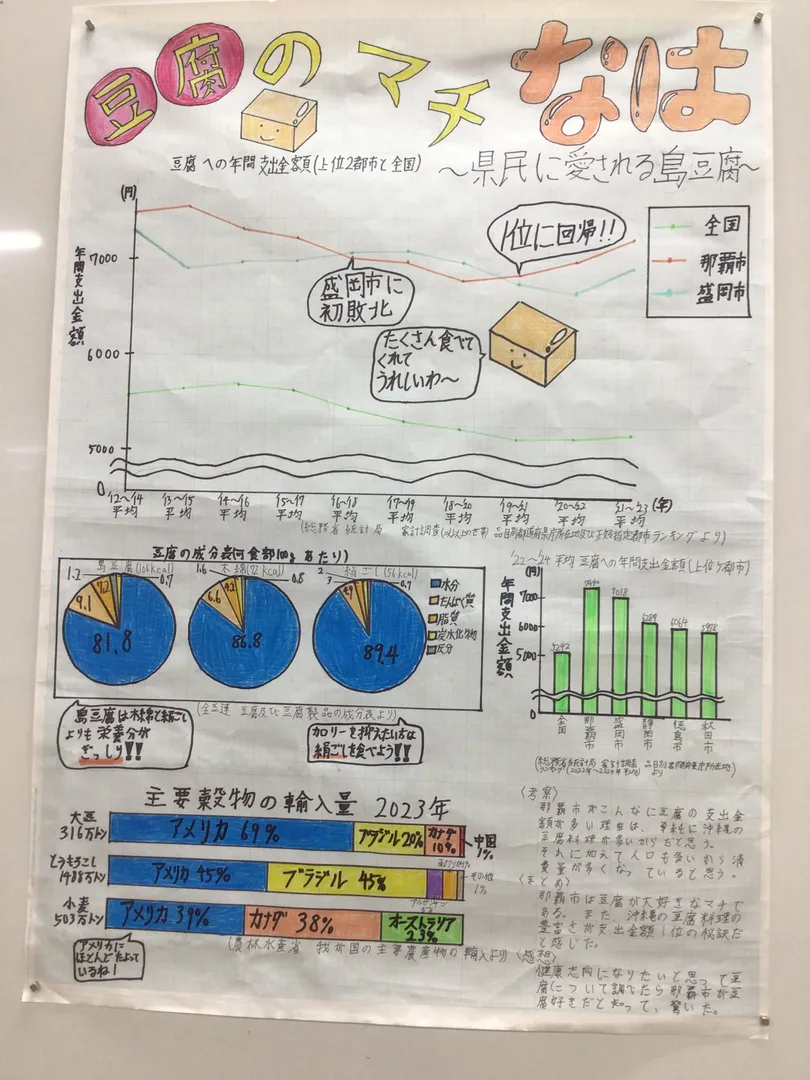 豆腐のマチなは
～県民に愛される島豆腐～
豆腐への年間支出金額(上位2都市と全国)
(円)
年間支出金額
7000
6000
5000
0
'12～'14 平均
'13～'15 平均
'14～'16 平均
'15～'17 平均
'16～'18 平均
'17～'19 平均
'18～'20 平均
'19～'21 平均
'20～'22 平均
'21～'23 平均
(年)
全国
那覇市
盛岡市
盛岡市に
初敗北
1位に回帰!!
たくさん食べて
くれて
うれしいわ～
(総務省統計局 家計調査 品目別都道府県庁所在地及び政令指定都市ランキングより)
豆腐の成分表(可食部100gあたり)
島豆腐(106kcal)
1.2
0.7
7.2
9.1
81.8
木綿(72kcal)
1.6
0.8
4.2
6.6
86.8
絹ごし(56kcal)
2
0.7
3
4.9
89.4
水分
たんぱく質
脂質
炭水化物
灰分
島豆腐は木綿と絹ごし
よりも栄養分が
ぎっしり!!
(全豆連 豆腐及び豆腐製品の成分表より)
カロリーを抑えたい方は
絹ごしを食べよう!!
'22～'24 平均 豆腐への年間支出金額(上位5都市)
(円)
年間支出金額
7000
6000
5000
5242
7018
6289
6064
全国
那覇市
盛岡市
静岡市
徳島市
秋田市
(総務省統計局 家計調査 品目別都道府県庁所在地
ランキング(2022年～2024年平均)より
主要穀物の輸入量 2023年
大豆
316万トン
アメリカ 69%
ブラジル 20%
カナダ
10%
中国
1%
とうもろこし
アメリカ 45%
ブラジル 45%
その他
1%
小麦
503万トン
アメリカ 39%
カナダ 38%
オーストラリア
アメリカに
ほとんどたよって
いるね!
(農林水産省 我が国の主要農産物の輸入より)
(考察)
那覇市がこんなに豆腐の支出金
額が多い理由は、単純に沖縄の
豆腐料理が多いからだと思う。
それに加えて人口も多いから消
費量が多くなっていると思う。
(まとめ)
那覇市は豆腐が大好きなマチで
ある。また、沖縄の豆腐料理の
豊富さが支出金額1位の秘訣だ
と感じた。
(感想)
健康志向になりたいと思って豆
腐について調べたら那覇市が豆
腐好きだと知って、驚いた。